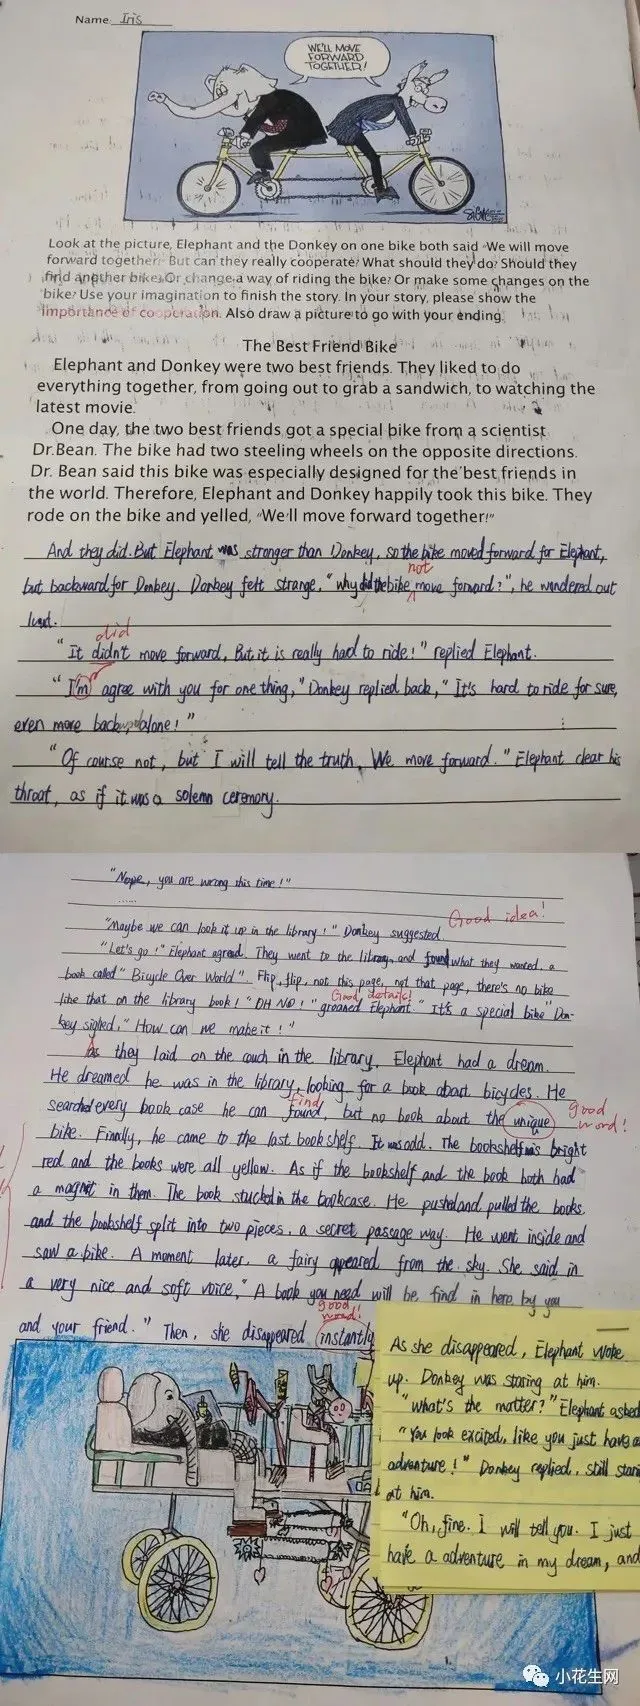 Name: Iris
WE'LL MOVE
FORWARD
TOGETHER!
Look at the picture, Elephant and the Donkey on one bike both said "We will move
forward together." But can they really cooperate? What should they do? Should they
find another bike? Or change a way of riding the bike? Or make some changes on the
bike? Use your imagination to finish the story. In your story, please show the
importance of cooperation. Also draw a picture to go with your ending.
The Best Friend Bike
Elephant and Donkey were two best friends. They liked to do
everything together, from going out to grab a sandwich, to watching the
latest movie.
One day, the two best friends got a special bike from a scientist
Dr.Bean. The bike had two steeling wheels on the opposite directions.
Dr. Bean said this bike was especially designed for the best friends in
the world. Therefore, Elephant and Donkey happily took this bike. They
rode on the bike and yelled, "We'll move forward together!"
And they did. But Elephant was stronger than Donkey, so the bike moved forward for Elephant,
not
but backward for Donkey. Donkey felt strange, "why did the bike move forward?", he wondered out
loud.
did
"It didn't move forward, But it is really hard to ride!" replied Elephant.
"I'm agree with you for one thing," Donkey replied back, "It's hard to ride for sure,
even more back alone!"
"Of course not, but I will tell the truth, We move forward." Elephant clear his
throat, as if it was a solemn ceremony.
"Nope, you are wrong this time!"
......
Good idea!
"Maybe we can look it up in the library!" Donkey suggested
"Let's go!" Elephant agread. They went to the library, and found what they wanted, a
book called "Bicycle Over World". Flip, flip, not this page, not that page, there's no bike
Good details!
like that on the library book! "OH NO!" groaned Elephant. "It's a special bike" Don-
key sighed, "How can we make it!"
As they laid on the couch in the library, Elephant had a dream.
He dreamed he was in the library, looking for a book about bicycles. He
find
good
searched every book case he can found, but no book about the unique
word!
bike. Finally, he came to the last bookshelf. It was odd. The bookshelf was bright
red and the books were all yellow. As if the bookshelf and the book both had
a magnet in them. The book stucked in the bookcase. He pushed and pulled the books,
and the bookshelf split into two pieces, a secret passage way. He went inside and
saw a bike. A moment later, a fairy appeared from the sky. She said in
a very nice and soft voice, "A book you need will be find in here by you
good
word!
and your friend." Then, she disappeared instantly
As she disappeared, Elephant woke
up. Donkey was staring at him.
"what's the matter?" Elephant asked
"You look excited, like you just have a
adventure!" Donkey replied, still stari
at him.
"Oh, fine. I will tell you. I just
have a adventure in my dream, and
小花生网